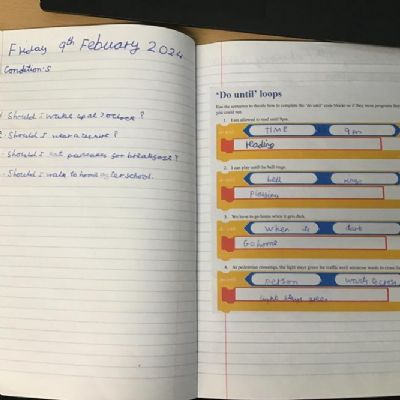 Friday 9th Febuary 2024
Condition's
Should I wake up at 7 o'clock?
Should I wear a
Should I eat pancakes for breakfast?
Should I walk to home after school.
'Do until' loops
Use the sentences to decide how to complete the 'do until' code blocks as if they were programs that
you could run.
1. I am allowed to read until 9pm.
TIME 9pm
Reading
2. I can play until the bell rings.
bell rings
Playing
3. We have to go home when it gets dark.
when is dark
Go home
4. At pedestrian crossings, the light stays green for traffic until someone wants to cross
person wants to cross
light stays green